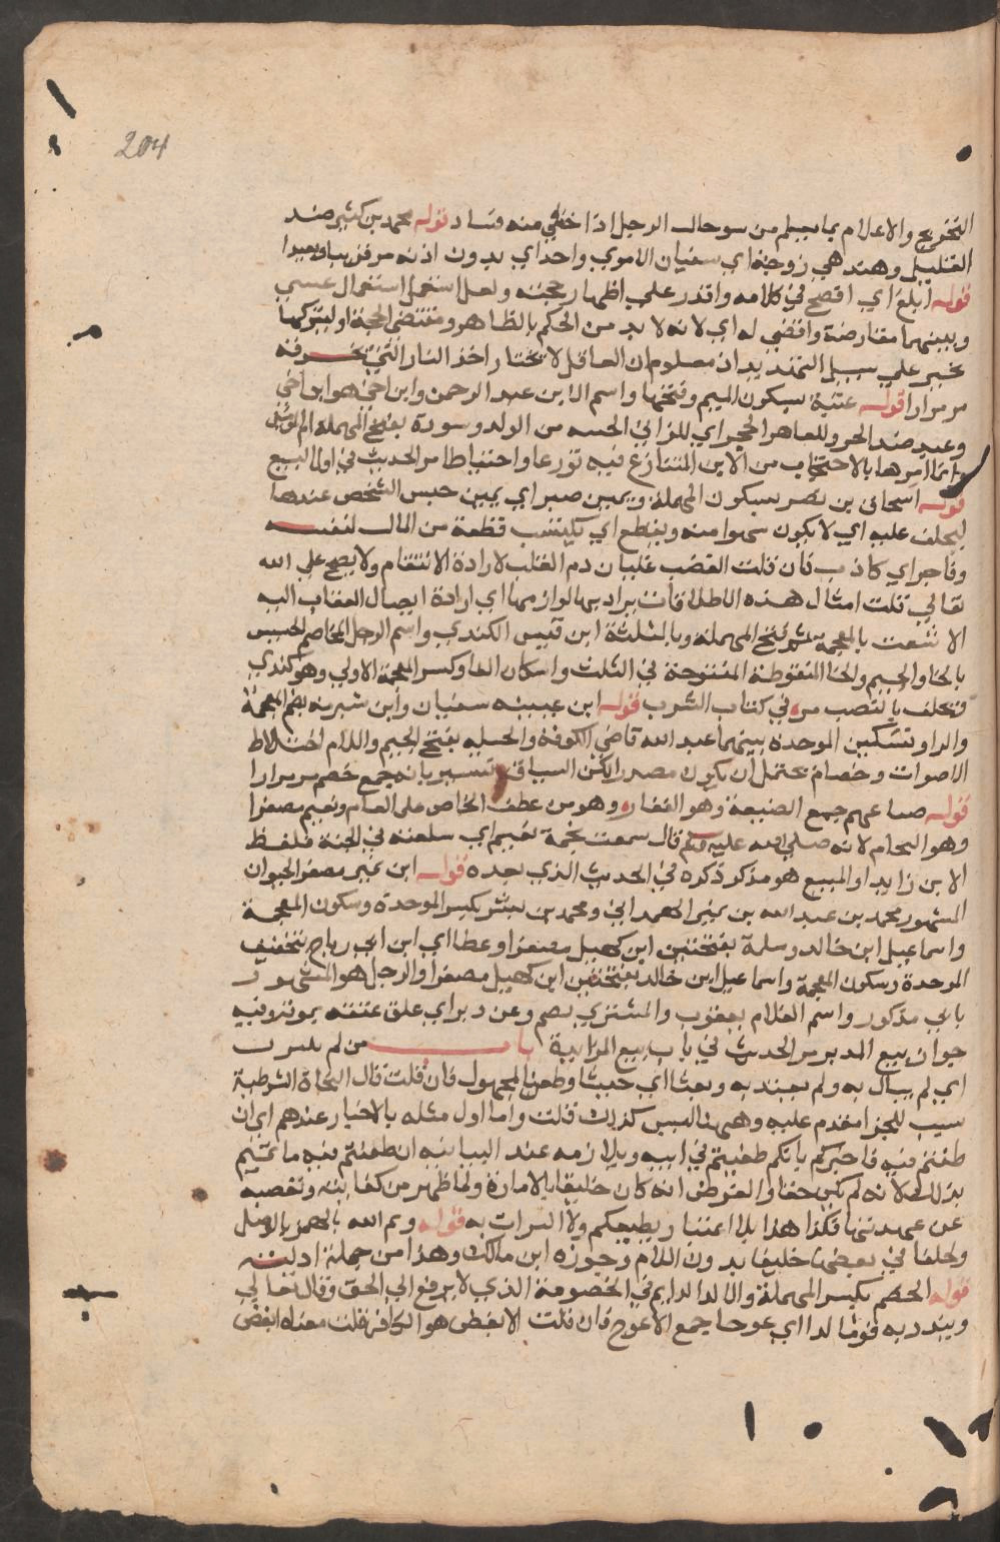 204
التخريج والاعلام بما يعلم من سو حال الرجل اذا خشي منه فساد قوله محمد بن كثير ضد
القليل وهند هي زوجة اي سفيان الاموي واحداي بدون اذنه مر قريبا وبعيدا
قوله ابلغ اي افصح في كلامه واقدر علي اظهار حجته ولعل استعمل استعمال عسي
وبينهما مقارضة واقضي له اي لانه لا بد من الحكم بالظاهر ومقتضي الحجة او ليتركها
تخيير علي سبيل التهديد اذ معلوم ان العاقل لا يختار اخذ النار التي تحرقه
مر مرارا قوله عتبة بسكون الميم وفتحها واسم الابن عبد الرحمن وابن اخي هو ابن اخي
وعبد ضد الحر وللعاهر الحجر اي للزاني الخيبة من الولد وسودة بفتح المهملة ام المؤمنين
وانما امرها بالاحتجاب من الابن المتنازع فيه تورعا واحتياطا مر الحديث في اول البيع
قوله اسحاق بن نصر بسكون المهملة ويمين صبر اي يمين حبس الشخص عندها
ليحلف عليه اي لا يكون سهوا منه ويقطع اي يكتسب قطعة من المال لنفسه
وفاجر اي كاذب فان قلت الغضب غليان دم القلب لارادة الانتقام ولا يصح علي الله
تعالي قلت امثال هذه الاطلاقات يراد بها لوازمها اي ارادة ايصال العقاب اليه
الاشعث بالمعجمة ثم فتح المهملة وبالمثلثة ابن قيس الكندي واسم الرجل المخاصم الجبس
بالحا والجيم والخا المنقوطة المفتوحة في الثلث واسكان الفا وكسر المعجمة الاولي وهو كندي
فيحلف بالنصب مر في كتاب الشرب قوله ابن عيينه سفيان وابن شبرمه بضم المعجمة
والرا وتسكين الموحدة بينهما عبد الله قاضي الكوفة والجلبه بفتح الجيم واللام اختلاط
الاصوات وخصام يحتمل ان يكون مصدر الكن السياق تفسير بانه جمع خصم مر مرارا
قوله ضياعهم جمع الضيعة وهو العقار وهو من عطف الخاص علي العام ونعيم مصغرا
وهو النحام لانه صلي الله عليه وسلم قال سمعت نحمة نعيم اي سلعته في الجنة فلفظ
الابن زايد او المبيع هو مذكر ذكره في الحديث الذي بعده قوله ابن نمير مصغر الحيوان
المشهور محمد بن عبد الله بن نمير الهمداني ومحمد بن بشر بكسر الموحدة وسكون المعجمة
واسماعيل ابن خالد وسلمة بفتحتين ابن كهيل مصغرا وعطا اي ابن ابي رباح بتخفيف
الموحدة وسكون المعجمة واسماعيل ابن خالد بفتحتين ابن كهيل مصغرا والرجل هو المشهور
بابي مذكور واسم الغلام يعقوب والمشتري نعيم وعن دبر اي علق عتقه بموته وفيه
جواز بيع المدبر مر الحديث في باب بيع المزايدة باب من لم يكترث
اي لم يبال به ولم يعتد به وبعثا اي جيشا وطعن للمجهول فان قلت قال النحاة الشرطية
سبب للجزا مقدم عليه وههنا ليس كذلك قلت واما اول مثله بالاخبار عندهم اي ان
طعنتم فيه فاخبركم بانكم طعنتم في ابيه وبلازمه عند البيانيه ان طعنتم فيه ما تمتم
بذلك لانه لم يكن حقا والغرض انه كان خليقا بالامارة ولما ظهر من كفايته وتقصيه
عن عهدتها فكذا هذا بلا اعتنا وبطعنكم ولا اكتراث به قوله وايم الله بالهمز بالوصل
ولخلقا في بعضها خليقا بدون اللام وجوزه ابن مالك وهذا من جملة ادلته
قوله الخصم بكسر المهملة والالد الدايم في الخصومة الذي لا يرفع الي الحق وقال تعالي
وينذر به قوما لدا اي عوجا جمع الاعوج فان قلت الابغض هو الكافر قلت معناه ابغض